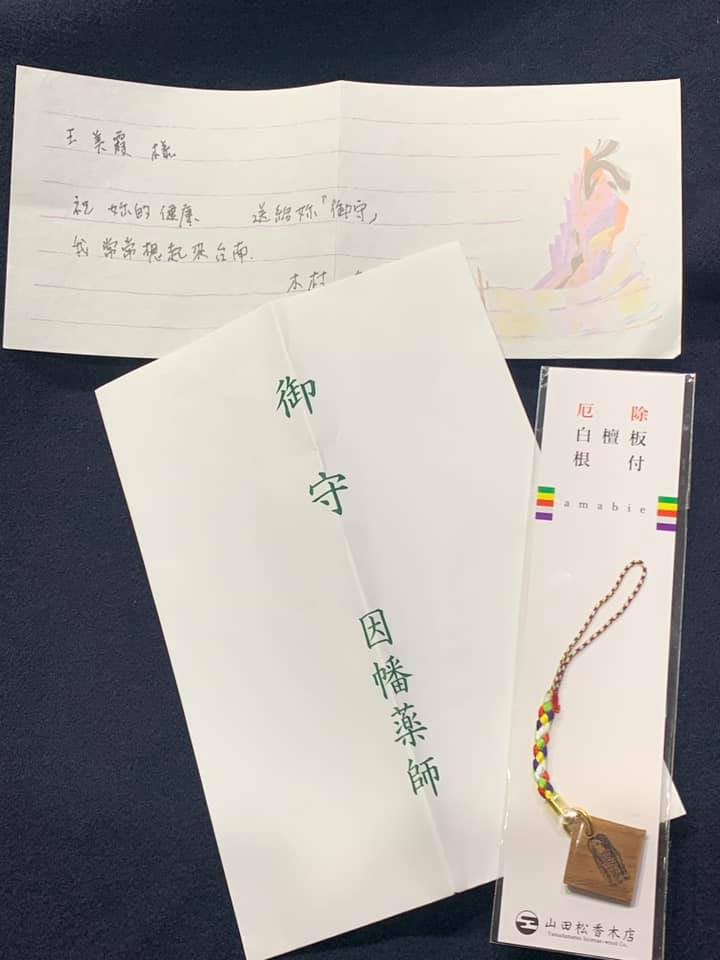 王美霞 様
祝 妳的健康 送給妳「御守」
我常常想起來台南.
木村
御守 因幡薬師
厄除
白檀板
根付
amabie
山田松香木店
Yamadamatsu Incense-wood Co.